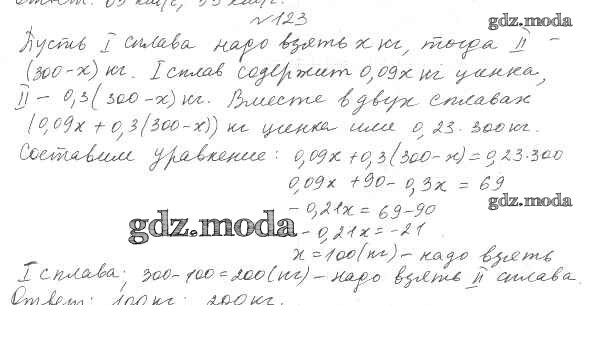 №123
gdz.moda
Пусть I сплава надо взять x кг, тогда II –
(300-x) кг. I сплав содержит 0,09x кг цинка,
II – 0,3(300-x) кг. Вместе в двух сплавах
(0,09x + 0,3(300-x)) кг цинка или 0,23·300кг.
Составим уравнение: 0,09x + 0,3(300-x) = 0,23·300
0,09x + 90 - 0,3x = 69
gdz.moda
- 0,21x = 69-90
gdz.moda
- 0,21x = -21
x = 100(кг) – надо взять
I сплава; 300-100=200(кг) – надо взять II сплава.
Ответ: 100кг; 200кг.